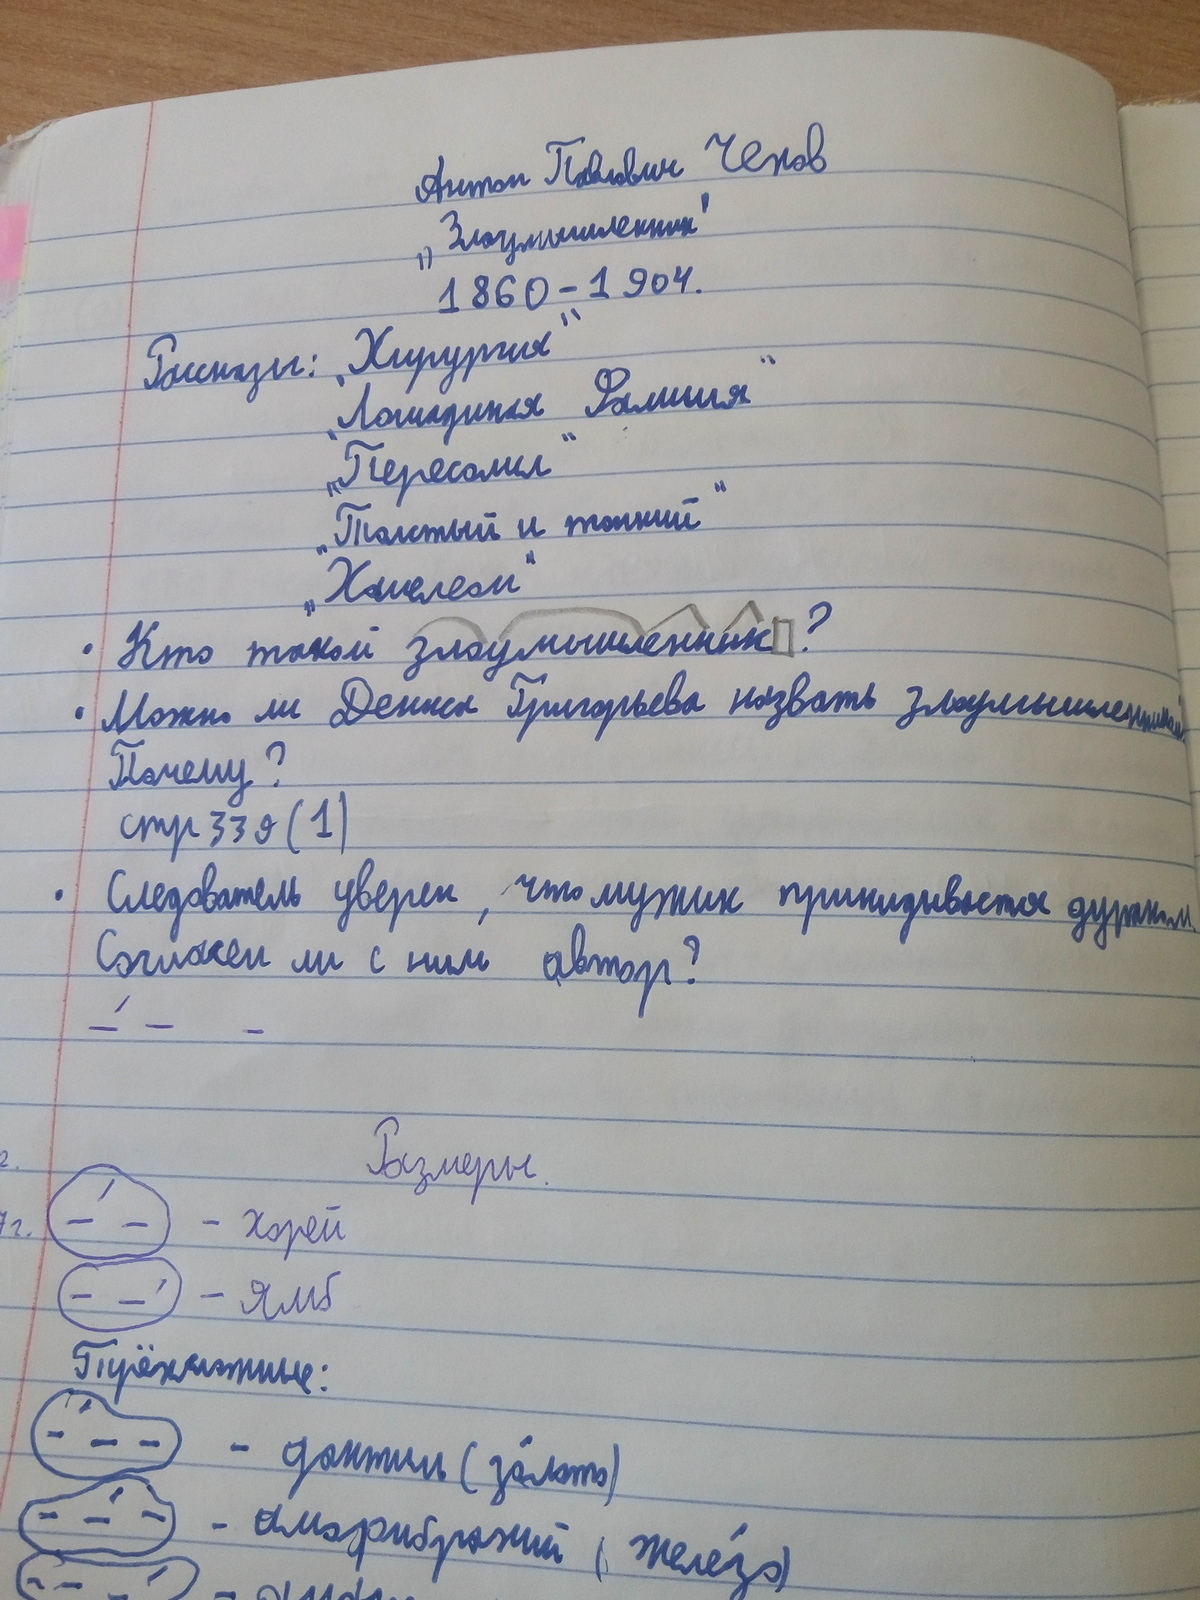 Антон Павлович Чехов
„Злоумышленник"
1860-1904.
Рассказы: „Хирургия"
„Лошадиная Фамилия"
„Пересолил"
„Толстый и тонкий"
„Хамелеон"
• Кто такой злоумышленник?
• Можно ли Дениса Григорьева назвать злоумышленником
Почему?
стр 339 (1)
• Следователь уверен, что мужик прикидывается дураком.
Согласен ли с ним автор?
Размеры.
г.
- хорей
7г.
- Ямб
Трёхсложные:
- дактиль (зо́лото)
- амфибрахий (желе́зо)